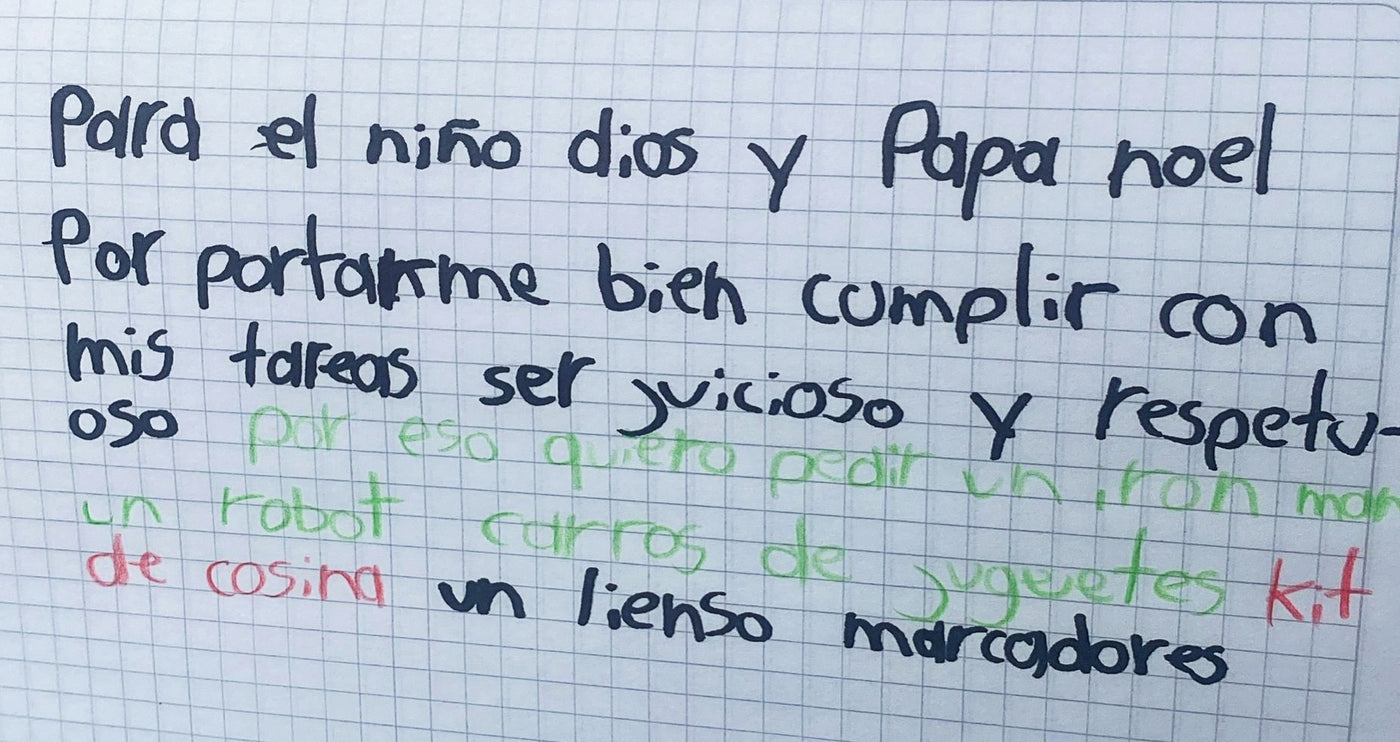 Para el niño dios y Papa noel
Por portarme bien cumplir con
mis tareas ser juicioso y respetu-
oso por eso quiero pedir un iron man
un robot carros de juguetes kit
de cosina un lienso marcadores